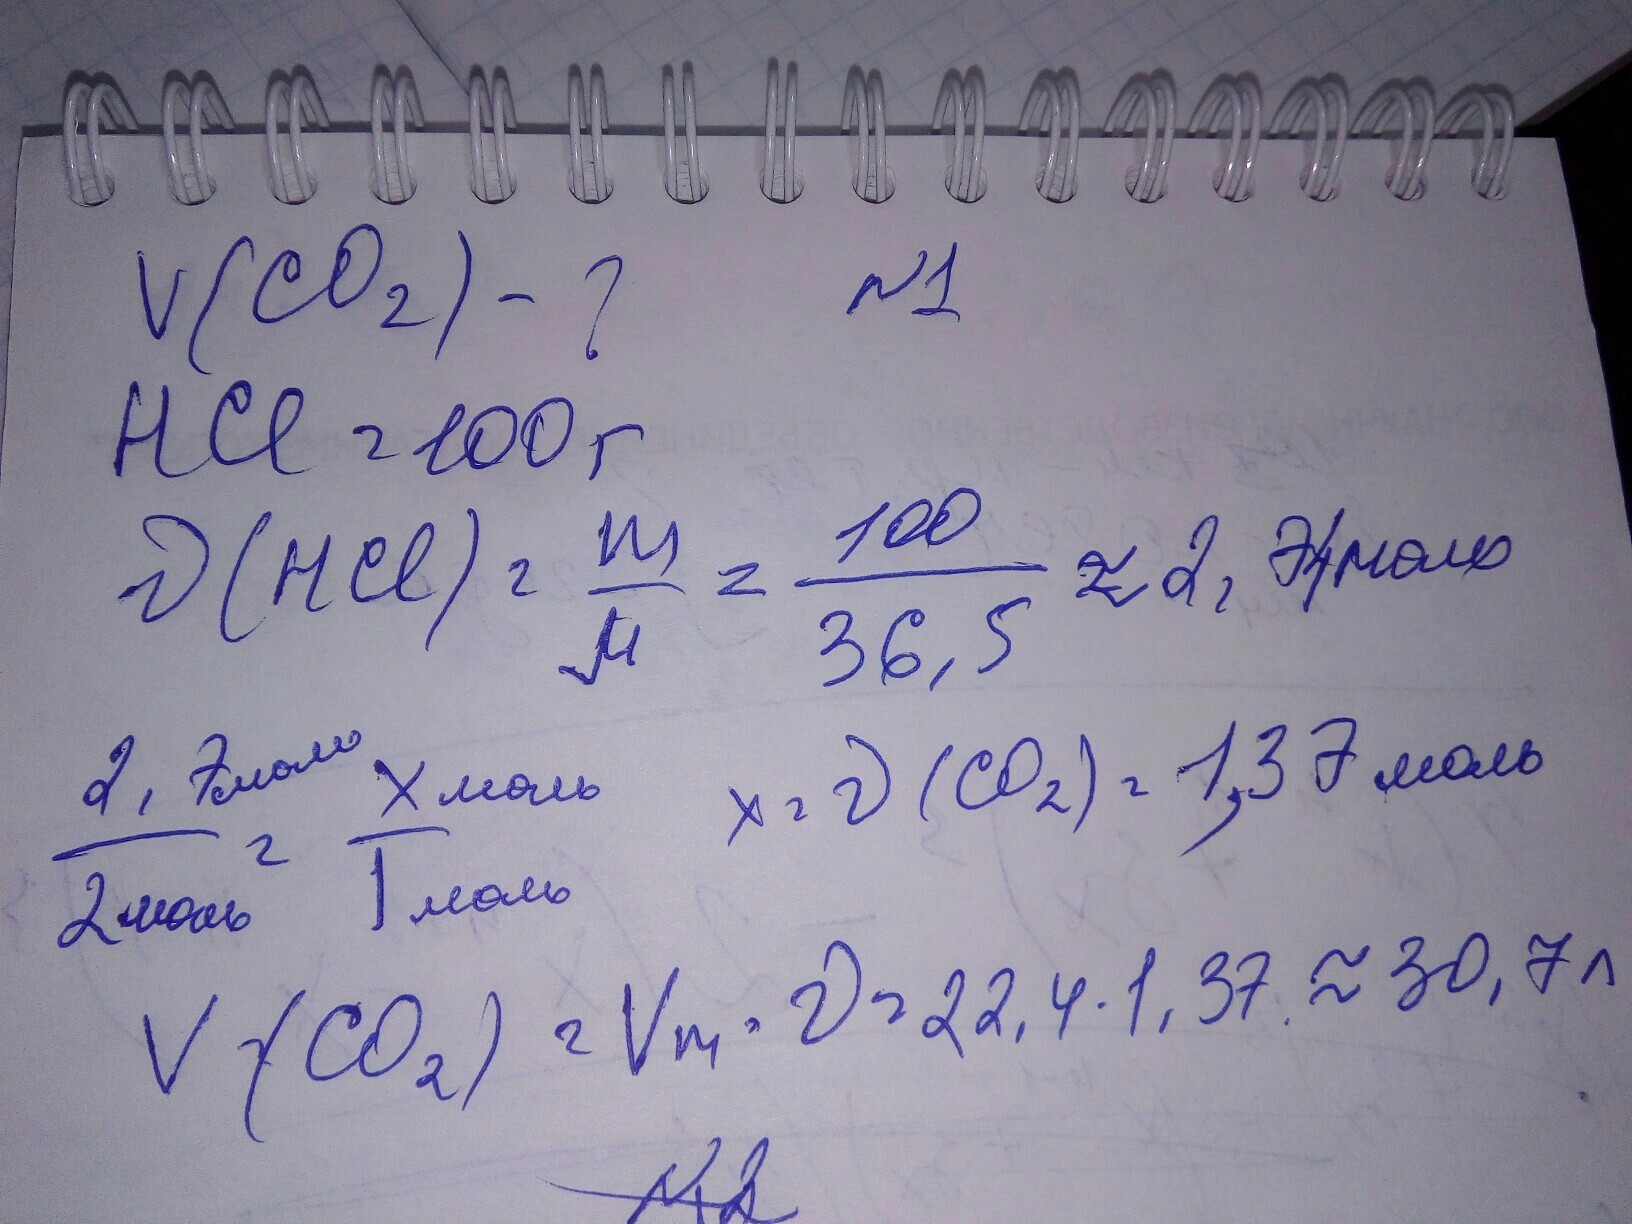 V(CO₂) - ? №1
HCl = 100г
ν(HCl) = m/M = 100/36,5 ≈ 2,74моль
2,7моль/2моль = x моль/1 моль x = ν(CO₂) = 1,37 моль
V(CO₂) = Vm · ν = 22,4 · 1,37 ≈ 30,7л
№2